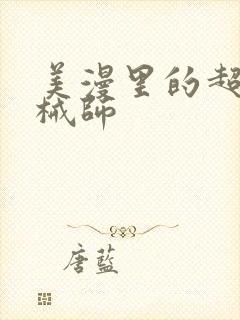 美漫里的超
械師
唐藍